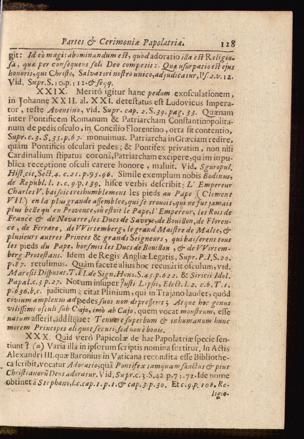 Partes & Cerimoniæ Papolatriæ. 128
git: Id eò magis abominandum est, quòd adoratio illa est Religio-
sa, quæ per consequens soli Deo competit: Quæ usurpatio est ejus
honoris, qui Christo, Salvatori nostro unico, adjudicatur, Ps. 2. v. 12.
Vid. Supr. S. 10. p. 112. & seqq.
XXIX. Meritò igitur hanc pedum exosculationem,
in Johanne XXII. al. XXI. detestatus est Ludovicus Impera-
tor, teste Aventino, vid. Supr. cap. 2. S. 39. pag. 33. Quæ nam
inter Pontificem Romanum & Patriarcham Constantinpolita-
num de pedis osculo, in Concilio Florentino, orta sit contentio,
Supr. c. 3. S. 31. p. 67. monuimus. Patriarcha in Græciam redire,
quàm Pontificis osculari pedes; & Pontifex privatim, non nisi
Cardinalium stipatus coronâ, Patriarcham excipere, qu im inpu-
blica receptione osculi carere honore, maluit. Vid. Sguropul.
Hist. cit. Sect. 4. c. 21. p. 95. 96. Simile exemplum nobis Bodinus,
de Republ. l. 1. c. 9. p. 139. hisce verbis describit: L' Empereur
Charles V. baisoit treshumblement les pieds au Pape (Clement
VII.) en la plus grande assemblée, qui se trouvoit, qui ne fut jamais
plus belle qu' en Provence, où estoit le Pape, l' Empereur, les Rois de
France & de Navarre, les Ducs de Savoye, de Bouillon, de Floren-
ce, de Ferrare, de VVirtemberg, le grand Maistre de Malte, &
plusieurs autres Princes & grands Seigneurs, qui baiserent tous
les pieds du Pape, horsmis les Ducs de Bouillon, & de VVirtem-
berg Protestans. Idem de Regis Angliæ Legatis, Supr. P. I. S. 20.
p. 87. retulimus. Quàm facetè alius hoc recusârit osculum, vid.
Maresii Disputat. T. II. de Sign. Hon. S. 45. p. 622. & Siricii Idol.
Papal. S. 3. p. 27. Notum insuper Justi Lipsii, Elect. l. 2. c. 6. T. 1.
p. 898. b. c. judicium; citat Plinium, qui in Trajano laudet, quòd
civium amplexus ad pedes suos non depresserit; Atque hoc genus
vilissimi osculi sub Cajo, imò ab Cajo, quem vocat monstrum, esse
natum asserit, additque: Tenuere superbum & inhumanum hunc
morem Principes aliquot securi: sed non è bonis.
XXX. Quid verò Papicolæ de hac Papolatriæ specie sen-
tiunt? (u) Varia illa in ipsorum scriptis nomina sortitur, In Actis
Alexandri III. quæ Baronius in Vaticana recondita esse Bibliothe-
ca scribit, vocatur Adoratio, quâ Pontifex tamquam sanctus & pius
Christianorũ Deus adoratur. Vid. Supr. c. 3. S. 42. p. 71. 72. Ide nome
obtinet à Stephano, l. c. cap. 1. p. 1. & cap. 3. p. 30. Et c. 9. p. 101. Re-
ligio-